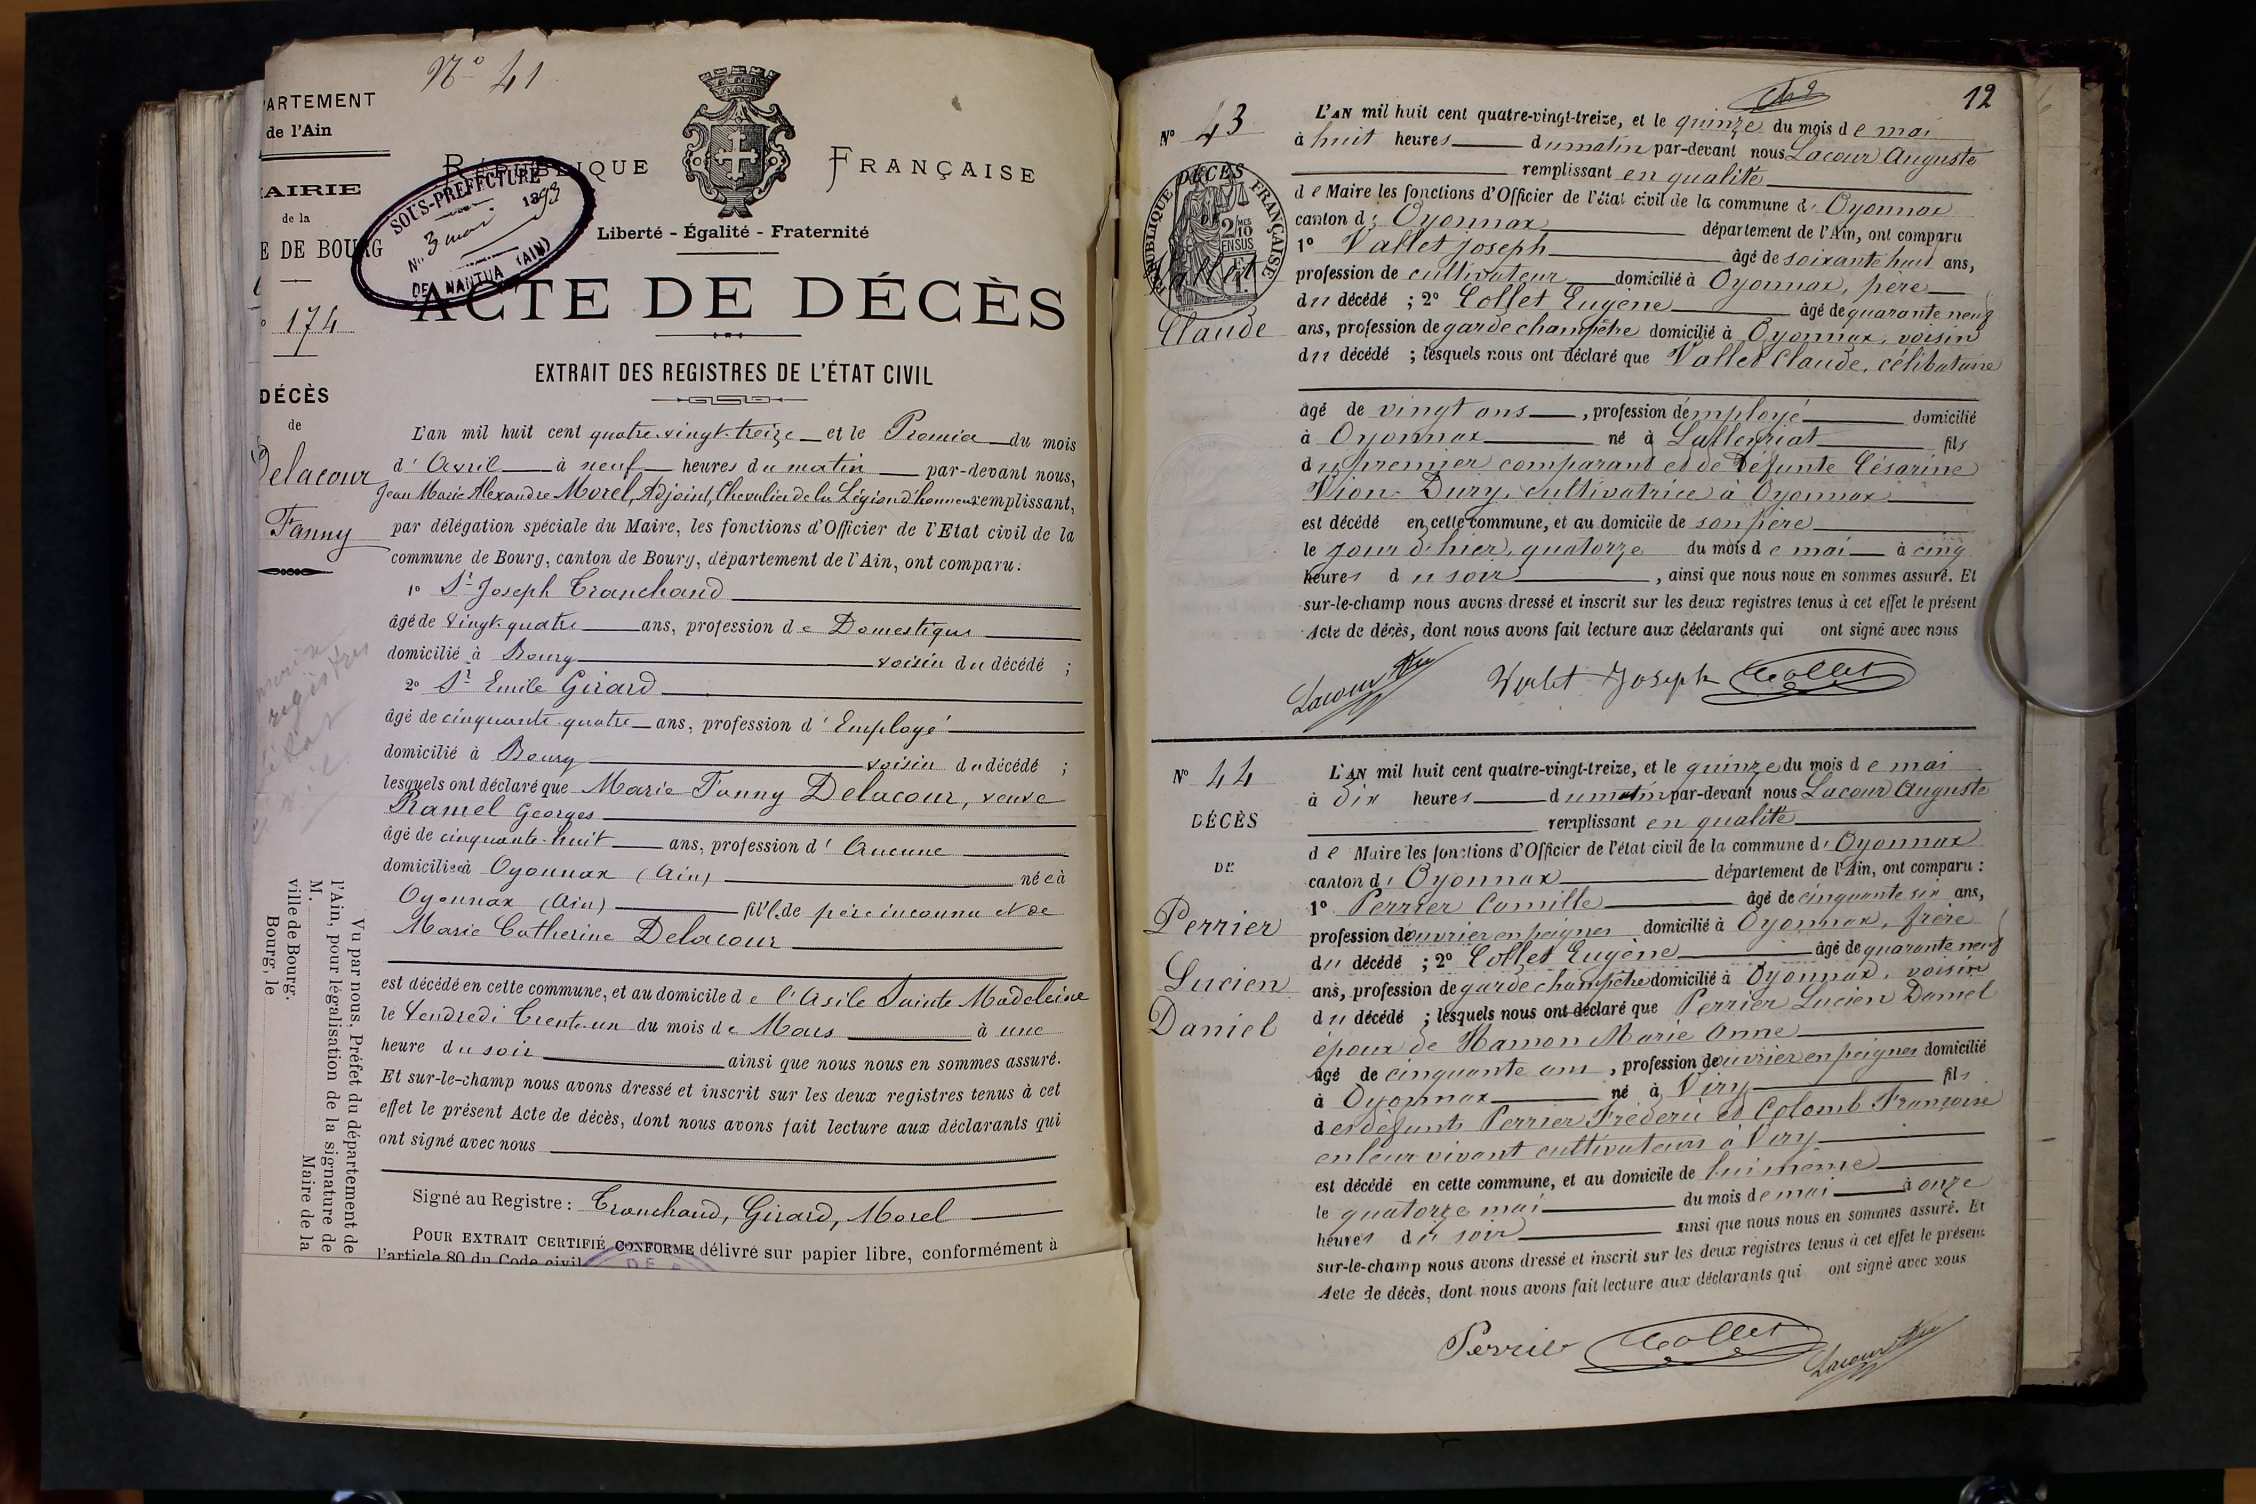 N° 41
PARTEMENT
de l'Ain
MAIRIE
de la
E DE BOURG
174
DÉCÈS
de
Delacour
Fanny
RÉPUBLIQUE FRANÇAISE
SOUS-PRÉFECTURE
N° 3 mai 1893
DE NANTUA (AIN)
Liberté - Égalité - Fraternité
ACTE DE DÉCÈS
EXTRAIT DES REGISTRES DE L'ÉTAT CIVIL
L'an mil huit cent quatre-vingt-treize et le Premier du mois
d'Avril à neuf heures du matin par-devant nous,
Jean Marie Alexandre Morel, Adjoint, Chevalier de la Légion d'honneur remplissant,
par délégation spéciale du Maire, les fonctions d'Officier de l'Etat civil de la
commune de Bourg, canton de Bourg, département de l'Ain, ont comparu:
1° Sr Joseph Tranchand
âgé de vingt-quatre ans, profession de Domestique
domicilié à Bourg voisin du décédé ;
2° Sr Emile Girard
âgé de cinquante-quatre ans, profession d'Employé
domicilié à Bourg voisin du décédé ;
lesquels ont déclaré que Marie Fanny Delacour, veuve
Ramel Georges
âgé de cinquante-huit ans, profession d'Aucune
domiciliée à Oyonnax (Ain) née à
Oyonnax (Ain) fille de père inconnu et de
Marie Catherine Delacour
est décédé en cette commune, et au domicile de l'Asile Sainte Madeleine
le Vendredi Trente-un du mois de Mars à une
heure du soir ainsi que nous nous en sommes assuré.
Et sur-le-champ nous avons dressé et inscrit sur les deux registres tenus à cet
effet le présent Acte de décès, dont nous avons fait lecture aux déclarants qui
ont signé avec nous
Signé au Registre : Tranchand, Girard, Morel
POUR EXTRAIT CERTIFIÉ CONFORME délivré sur papier libre, conformément à
l'article 80 du Code civil
Vu par nous, Préfet du département de
l'Ain, pour légalisation de la signature de
M. Maire de la
ville de Bourg.
Bourg, le
12
N° 43
RÉPUBLIQUE FRANÇAISE
DÉCÈS
2/10 EN SUS
Vallet
Claude
L'AN mil huit cent quatre-vingt-treize, et le quinze du mois de mai
à huit heures du matin par-devant nous Lacour Auguste
remplissant en qualité
de Maire les fonctions d'Officier de l'état civil de la commune d'Oyonnax
canton d'Oyonnax département de l'Ain, ont comparu
1° Vallet Joseph âgé de soixante huit ans,
profession de cultivateur domicilié à Oyonnax, père
du décédé ; 2° Collet Eugène âgé de quarante neuf
ans, profession de garde champêtre domicilié à Oyonnax, voisin
du décédé ; lesquels nous ont déclaré que Vallet Claude, célibataire
âgé de vingt ans, profession d'employé domicilié
à Oyonnax né à Lalleyriat fils
du premier comparant et de défunte Césarine
Vion-Dury, cultivatrice à Oyonnax
est décédé en cette commune, et au domicile de son père
le jour d'hier, quatorze du mois de mai à cinq
heures du soir, ainsi que nous nous en sommes assuré. Et
sur-le-champ nous avons dressé et inscrit sur les deux registres tenus à cet effet le présent
Acte de décès, dont nous avons fait lecture aux déclarants qui ont signé avec nous
Lacour Vallet Joseph Collet
N° 44
DÉCÈS
DE
Perrier
Lucien
Daniel
L'AN mil huit cent quatre-vingt-treize, et le quinze du mois de mai
à dix heures du matin par-devant nous Lacour Auguste
remplissant en qualité
de Maire les fonctions d'Officier de l'état civil de la commune d'Oyonnax
canton d'Oyonnax département de l'Ain, ont comparu :
1° Perrier Camille âgé de cinquante six ans,
profession d'ouvrier en peignes domicilié à Oyonnax, frère
du décédé ; 2° Collet Eugène âgé de quarante neuf
ans, profession de garde champêtre domicilié à Oyonnax, voisin
du décédé ; lesquels nous ont déclaré que Perrier Lucien Daniel
époux de Hamon Marie Anne
âgé de cinquante ans, profession d'ouvrier en peignes domicilié
à Oyonnax né à Viry fils
des défunts Perrier Fréderic et Colomb Françoise
en leur vivant cultivateurs à Viry
est décédé en cette commune, et au domicile de lui même
le quatorze mai du mois de mai à onze
heures du soir ainsi que nous nous en sommes assuré. Et
sur-le-champ nous avons dressé et inscrit sur les deux registres tenus à cet effet le présent
Acte de décès, dont nous avons fait lecture aux déclarants qui ont signé avec nous
Perrier Collet Lacour